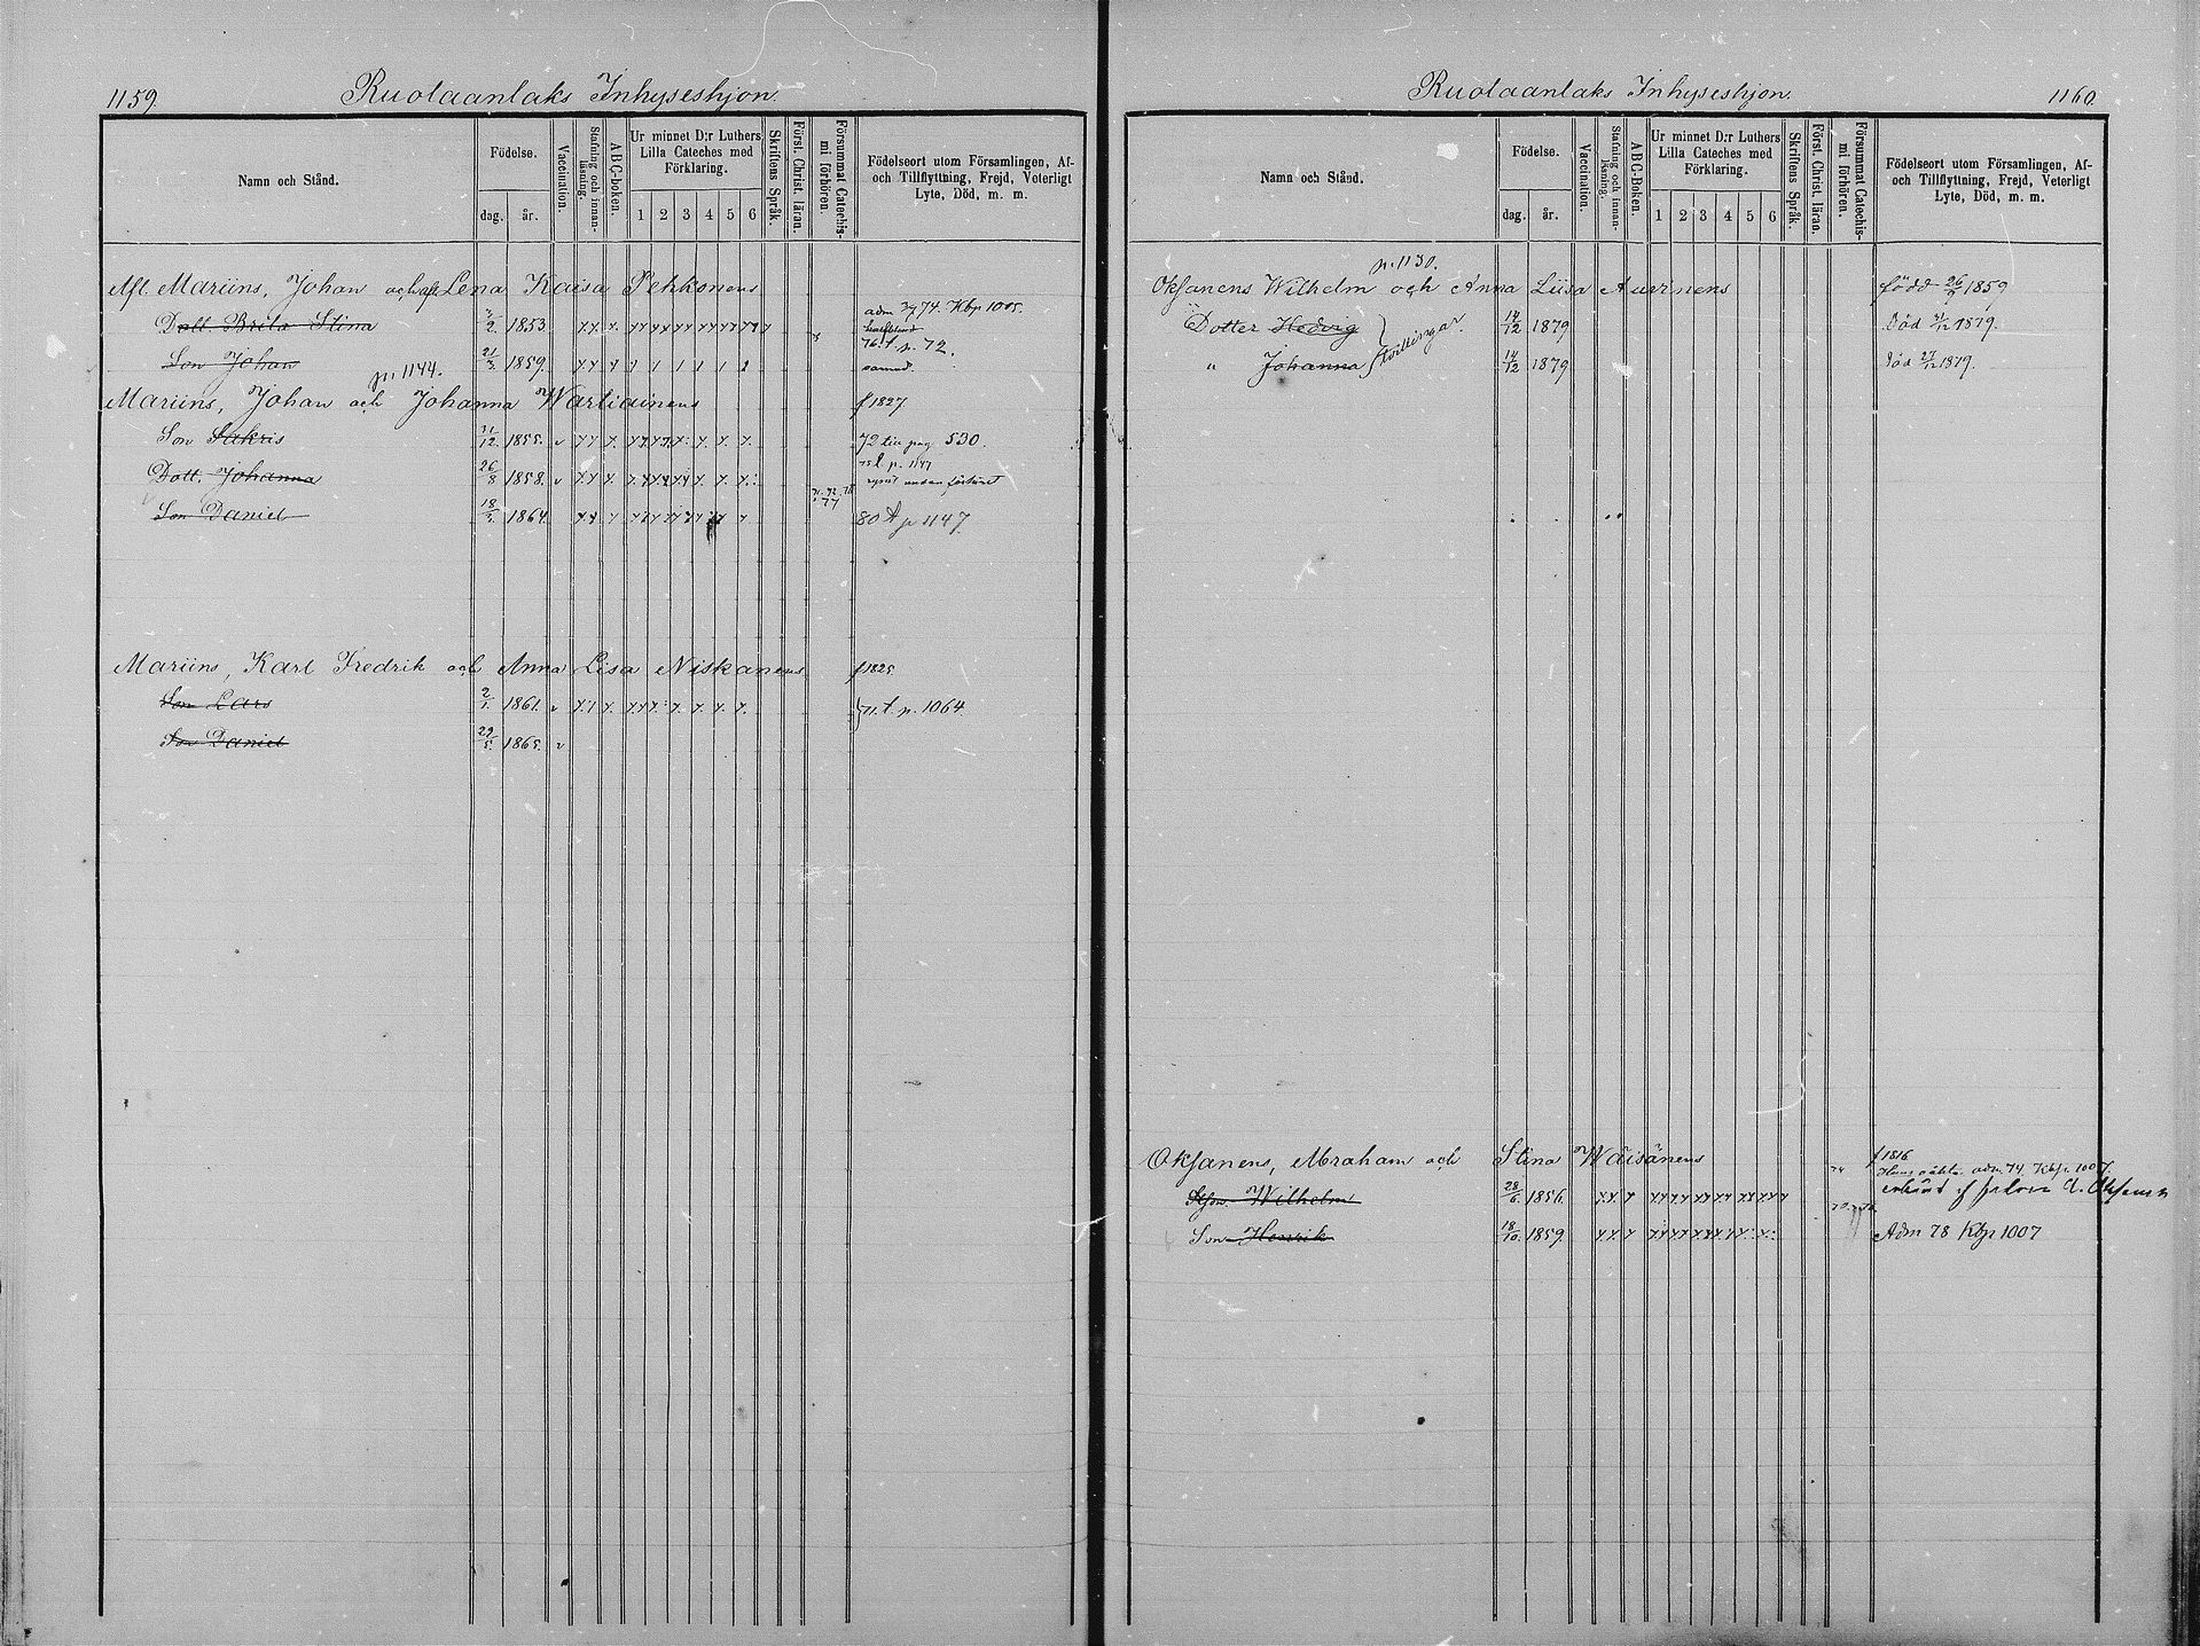 1159.
Ruolaanlaks Inhyseshjon.
Namn och Stånd.
Födelse.
dag. år.
Vaccination.
Stafning och innanläsning.
ABC-boken.
Ur minnet D:r Luthers
Lilla Cateches med
Förklaring.
1 2 3 4 5 6
Skriftens Språk.
Först. Christ. läran.
Försummat Catechismi förhören.
Födelseort utom Församlingen, Af-
och Tillflyttning, Frejd, Veterligt
Lyte, Död, m. m.
Afl. Mariins, Johan och afl Lena Kaisa Pehkonens
Dott Brita Stina 3/2 1853 adm 74. Kbp 1005.
Son Johan 21/3 1859. 76. t. p. 72.
p. 1144.
Mariins, Johan och Johanna Wartiainens f 1827.
Son Sakris 31/12 1855. v 72 till pag 530.
Dott. Johanna 26/8 1858. v 75 t. p. 1147
Son Daniel 18/3 1864. 71. 72. 77 80 t p 1147.
Mariins, Karl Fredrik och Anna Lisa Niskanens f 1825.
Son Lars 2/1. 1861. v } 71. t. p. 1064.
Son Daniel 29/5. 1865. v
Ruolaanlaks Inhyseshjon.
1160.
Namn och Stånd.
Födelse.
dag. år.
Vaccination.
Stafning och innanläsning.
ABC-Boken.
Ur minnet D:r Luthers
Lilla Cateches med
Förklaring.
1 2 3 4 5 6
Skriftens Språk.
Först. Christ. läran.
Försummat Catechismi förhören.
Födelseort utom Församlingen, Af-
och Tillflyttning, Frejd, Veterligt
Lyte, Död, m. m.
p. 1130.
Oksanens Wilhelm och Anna Liisa Auvinens född 26/9 1859
Dotter Hedvig } tvillingar. 14/12 1879 Död 31/12 1879.
" Johanna 14/12 1879 Död 27/12 1879.
Oksanens, Abraham och Stina Wäisänens f 1816
74 adm. 74. Kbp. 1007.
Wilhelm 28/6. 1856.
Son Henrik 18/10. 1859. Adm 78 Kbp 1007